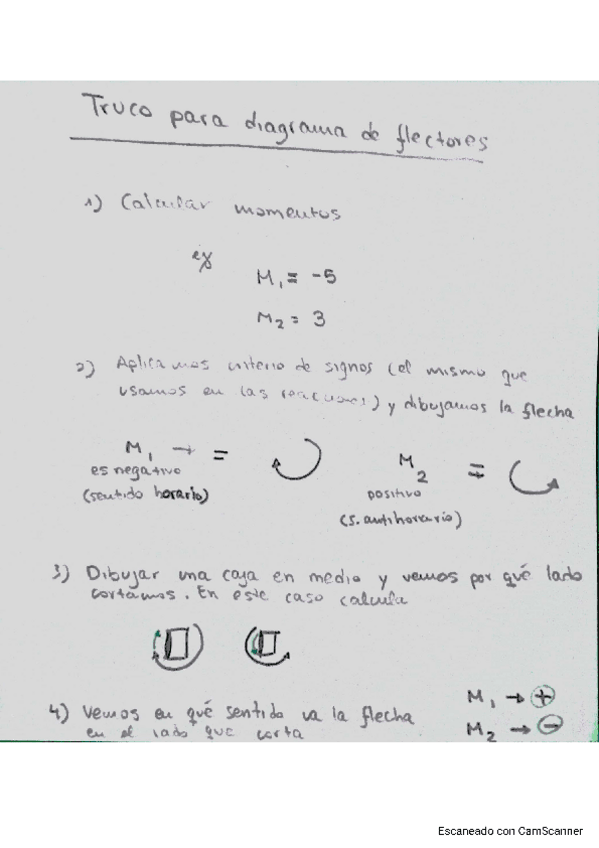 Truco para diagrama de flectores
1) Calcular momentos
ej
M₁ = -5
M₂ = 3
2) Aplicamos criterio de signos (el mismo que
usamos en las reacciones) y dibujamos la flecha
M₁ → =
es negativo
(sentido horario)
M₂ =
positivo
(s. antihorario)
3) Dibujar una caja en medio y vemos por qué lado
cortamos. En este caso calcula
4) Vemos en qué sentido va la flecha
en el lado que corta
M₁ → +
M₂ → -
Escaneado con CamScanner